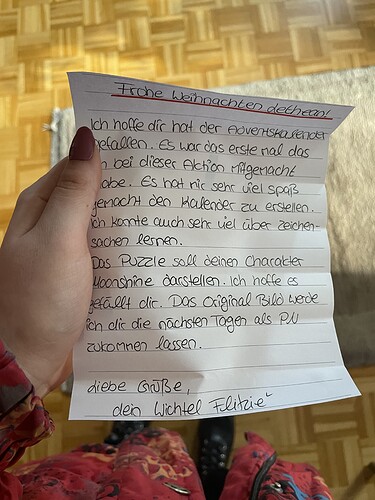 Frohe Weihnachten detheani
Ich hoffe dir hat der Adventskalender
gefallen. Es war das erste mal das
ich bei dieser Aktion mitgemacht
habe. Es hat mir sehr viel spaß
gemacht den Kalender zu erstellen.
Ich konnte auch sehr viel über zeichen-
sachen lernen.
Das Puzzle soll deinen Charakter
Moonshine darstellen. Ich hoffe es
gefällt dir. Das Original Bild werde
ich dir die nächsten Tagen als PN
zukommen lassen.
liebe Grüße,
dein Wichtel